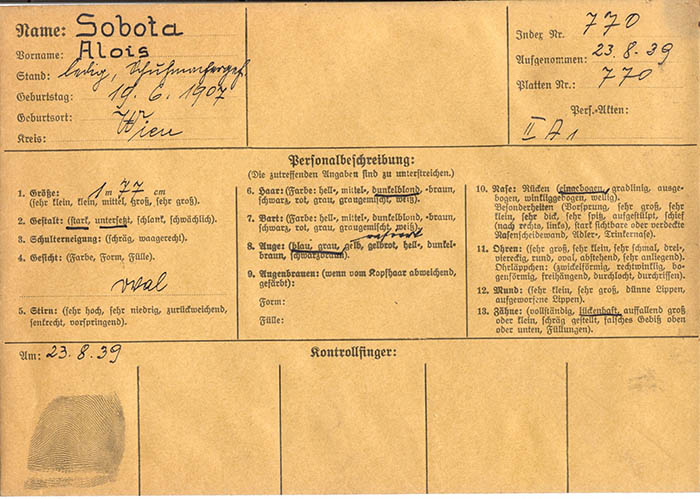 Name: Sobota
Vorname: Alois
Stand: ledig, Schuhmachergeh.
Geburtstag: 19. 6. 1907
Geburtsort: Wien
Kreis:
Index Nr. 770
Aufgenommen: 23. 8. 39
Platten Nr.: 770
Pers.-Akten:
II A 1
Personalbeschreibung:
(Die zutreffenden Angaben sind zu unterstreichen.)
1. Größe: 1 m 77 cm
(sehr klein, klein, mittel, groß, sehr groß).
2. Gestalt: (stark, untersetzt, schlank, schwächlich).
3. Schulterneigung: (schräg, waagerecht).
4. Gesicht: (Farbe, Form, Fülle).
oval
5. Stirn: (sehr hoch, sehr niedrig, zurückweichend,
senkrecht, vorspringend).
6. Haar: (Farbe: hell-, mittel-, dunkelblond, -braun,
schwarz, rot, grau, graugemischt, weiß).
7. Bart: (Farbe: hell-, mittel-, dunkelblond, -braun,
schwarz, rot, grau, graugemischt, weiß).
8. Auge: (blau, grau, gelb, gelbrot, hell-, dunkel-
braun, schwarzbraun).
9. Augenbrauen: (wenn vom Kopfhaar abweichend,
gefärbt):
Form:
Fülle:
10. Nase: Rücken (eingebogen, gradlinig, ausge-
bogen, winkliggebogen, wellig).
Besonderheiten (Vorsprung, sehr groß, sehr
klein, sehr dick, sehr spitz, aufgestülpt, schief
(nach rechts, links), stark sichtbare oder verdeckte
Nasenscheidewand, Adler-, Trinkernase).
11. Ohren: (sehr groß, sehr klein, sehr schmal, drei-,
viereckig, rund, oval, abstehend, sehr anliegend).
Ohrläppchen: (zwickelförmig, rechtwinklig, bo-
genförmig, freihängend, durchlocht, durchrissen).
12. Mund: (sehr klein, sehr groß, dünne Lippen,
aufgeworfene Lippen).
13. Zähne: (vollständig, lückenhaft, auffallend groß
oder klein, schräg gestellt, falsches Gebiß oben
oder unten, Füllungen).
Am: 23. 8. 39
Kontrollfinger: